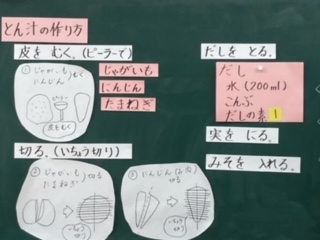 とん汁の作り方
皮を むく。(ピーラーで)
① じゃがいも
にんじん
むく
皮をむく
じゃがいも
にんじん
たまねぎ
切る。(いちょう切り)
② じゃがいも
たまねぎ
切る
いちょう切り
③ にんじん
切る
いちょう切り
だしを とる。
だし
水(200ml)
こんぶ
だしの素 1
実を にる。
みそを 入れる。